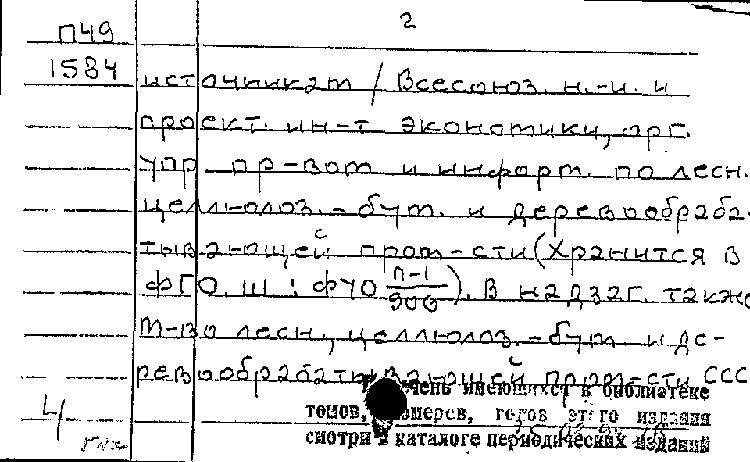 2
П49
1584
источникам / Всесоюз. н.-и. и
проект. ин-т экономики, орг.
упр. пр-вом и информ. по лесн.
целлюлоз.-бум. и деревообраба-
тывающей пром-сти (Хранится в
ФГО. Ш : ФУО П-1/900). В надзаг. также
М-во лесн., целлюлоз.-бум и де-
ревообрабатывающей пром-сти СССР
имеющихся в библиотеке
томов, номеров, годов этого издания
смотри в каталоге периодических изданий